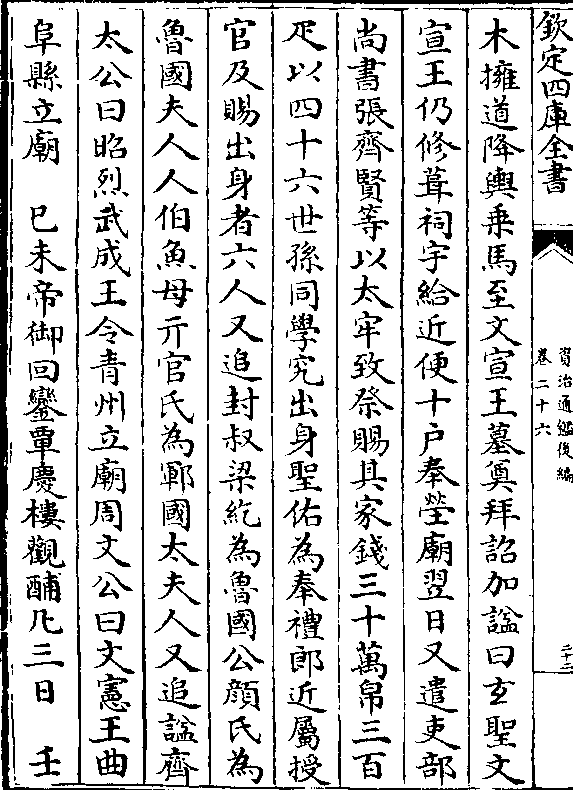 欽定四庫全書
資治通鑑後編
卷二十六
二十二
木擁道降輿乗馬至文宣王墓奠拜詔加諡曰玄聖文
宣王仍修葺祠宇給近便十户奉塋廟翌日又遣吏部
尚書張齊賢等以太牢致祭賜其家錢三十萬帛三百
疋以四十六世孫同學究出身聖佑為奉禮郎近屬授
官及賜出身者六人又追封叔梁紇為魯國公顔氏為
魯國夫人人伯魚母亓官氏為鄆國太夫人又追諡齊
太公曰昭烈武成王令青州立廟周文公曰文憲王曲
阜縣立廟　巳未帝御回鑾覃慶樓觀酺凡三日　壬